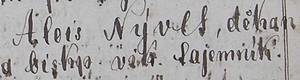 Alois Nyvlt, děkan
a biskp. vik. tajemník.